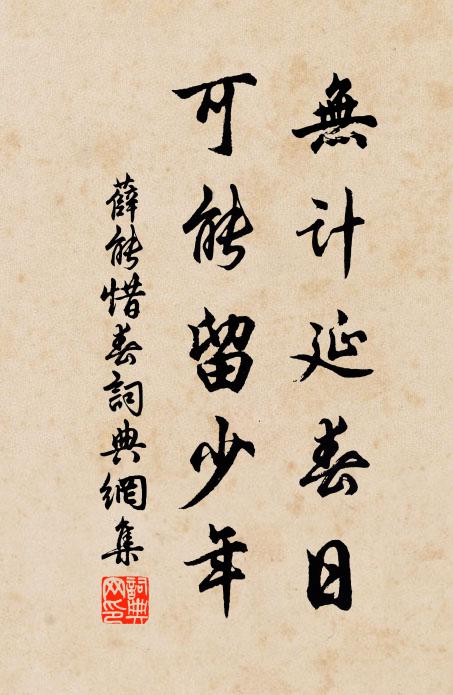 無計延春日
可能留少年
薛能惜春詞典網集
詞典网印